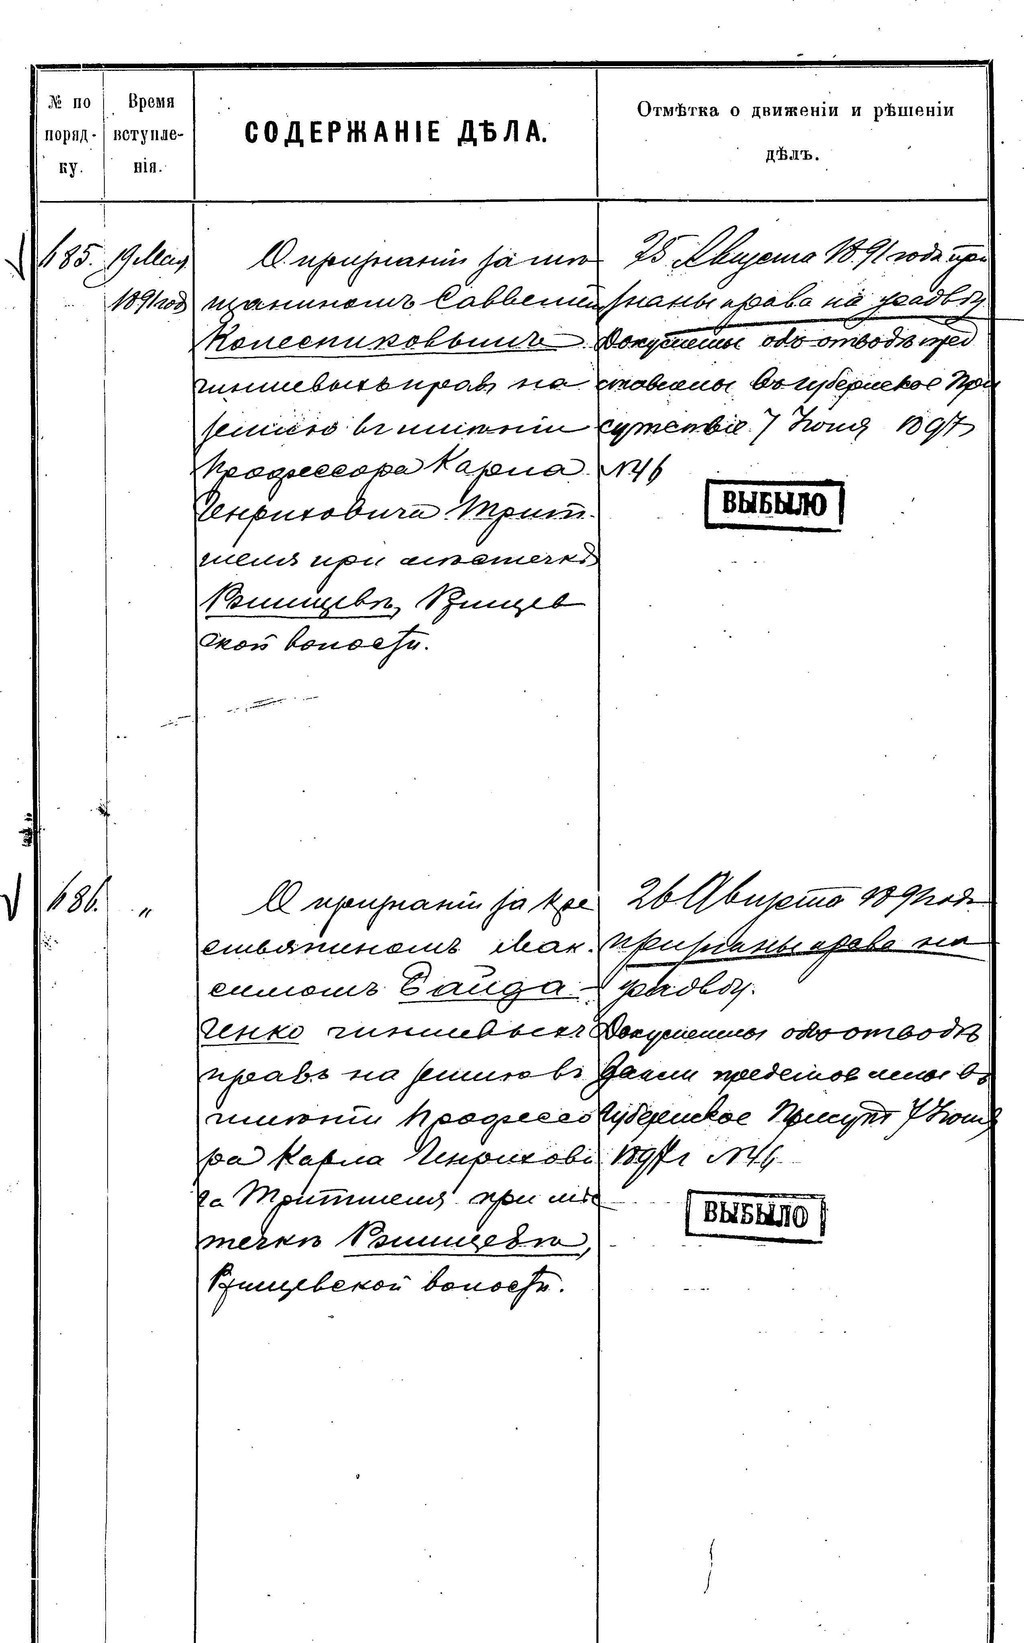 № по поряд- ку.
Время вступле- нія.
СОДЕРЖАНІЕ ДѢЛА.
Отмѣтка о движеніи и рѣшеніи дѣлъ.
685.
19 Мая
1891 год
О признаніи за мѣ
щаниномъ Савветіем
Колесниковымъ
чиншевыхъ правъ на
землю въ имѣніи
Профессора Карла
Генриховича Трит
шеля при мѣстечкѣ
Ржищевѣ, Ржищев
ской волости.
25 Августа 1891 года при
знаны права на усадьбу
Документы объ отводѣ пред
ставлены въ Губернское При
сутствіе 7 Іюня 1897
№46
ВЫБЫЛО
686.
"
О признаніи за кре
стьяниномъ Мак-
симомъ Гайда-
Генко чиншевыхъ
правъ на землю въ
имѣніи Профессо
ра Карла Генрихови
ча Тритшеля при мѣс
течкѣ Ржищевѣ,
Ржищевской волости.
26 Августа 1891 года
признаны права на
усадьбу.
Документы объ отводѣ
представлены въ
Губернское Присутт 7 Іюня
1897 г №46
ВЫБЫЛО